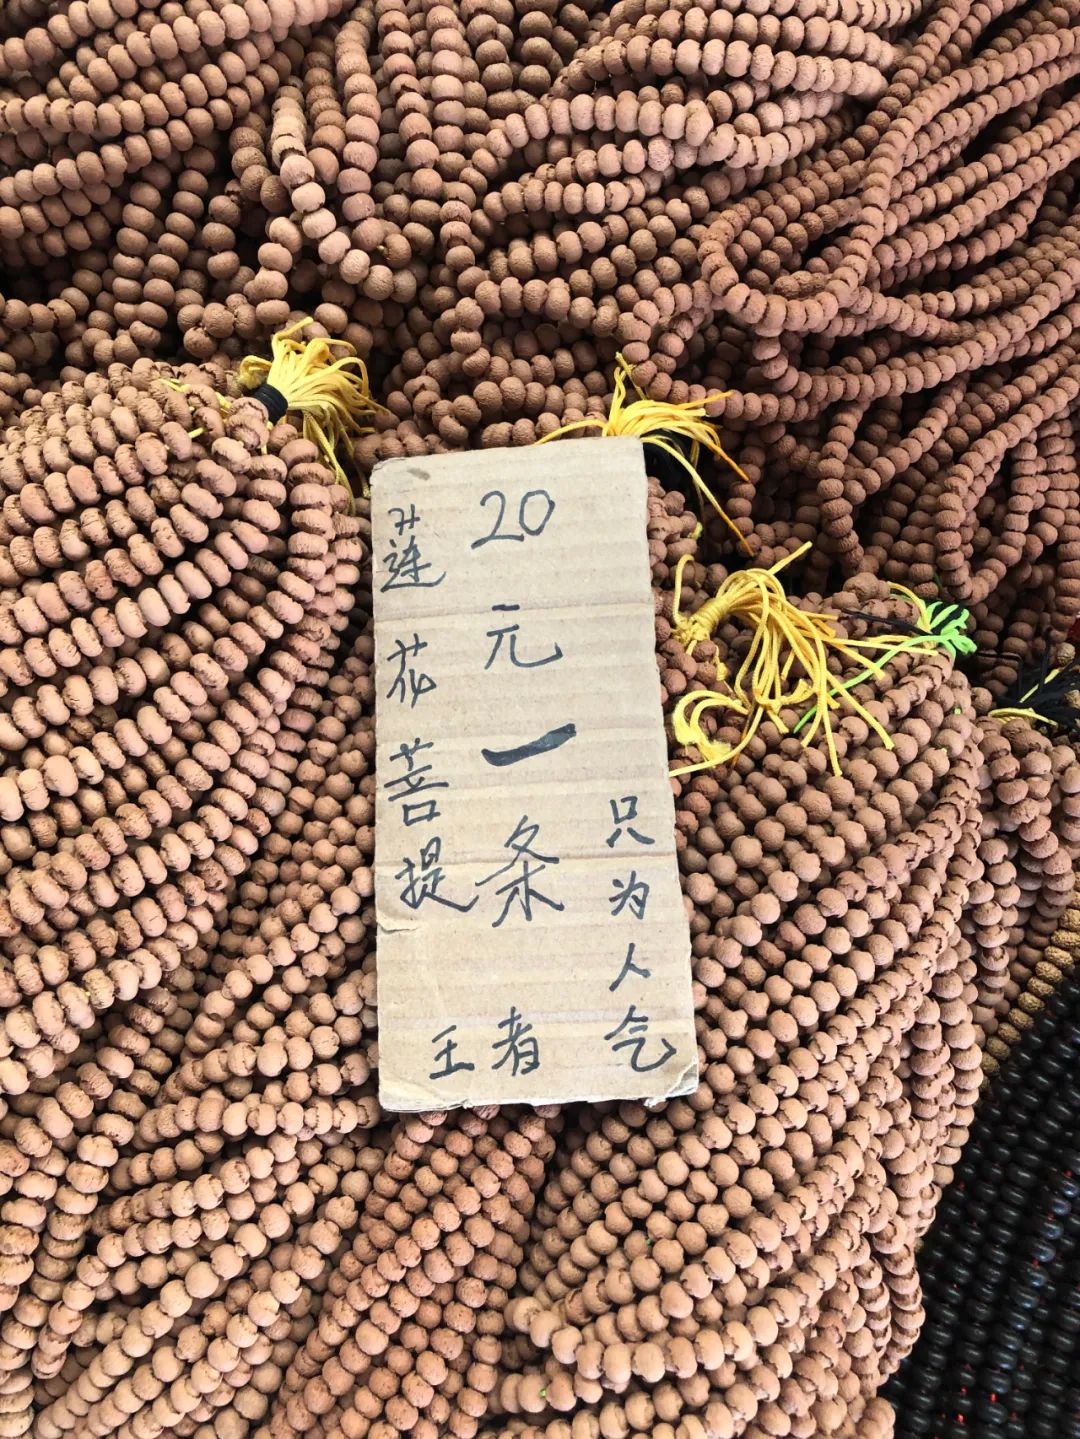 莲花菩提
20元一条
只为人气
王者